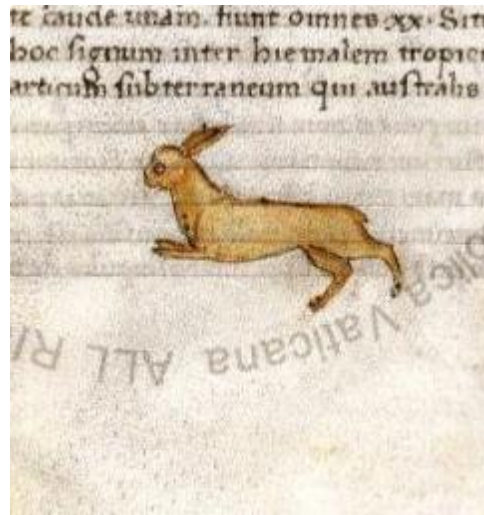 te caude unam. fiunt omnes xx.
hoc signum inter hiemalem tropic
articum subterraneum qui australis
Vaticana ALL